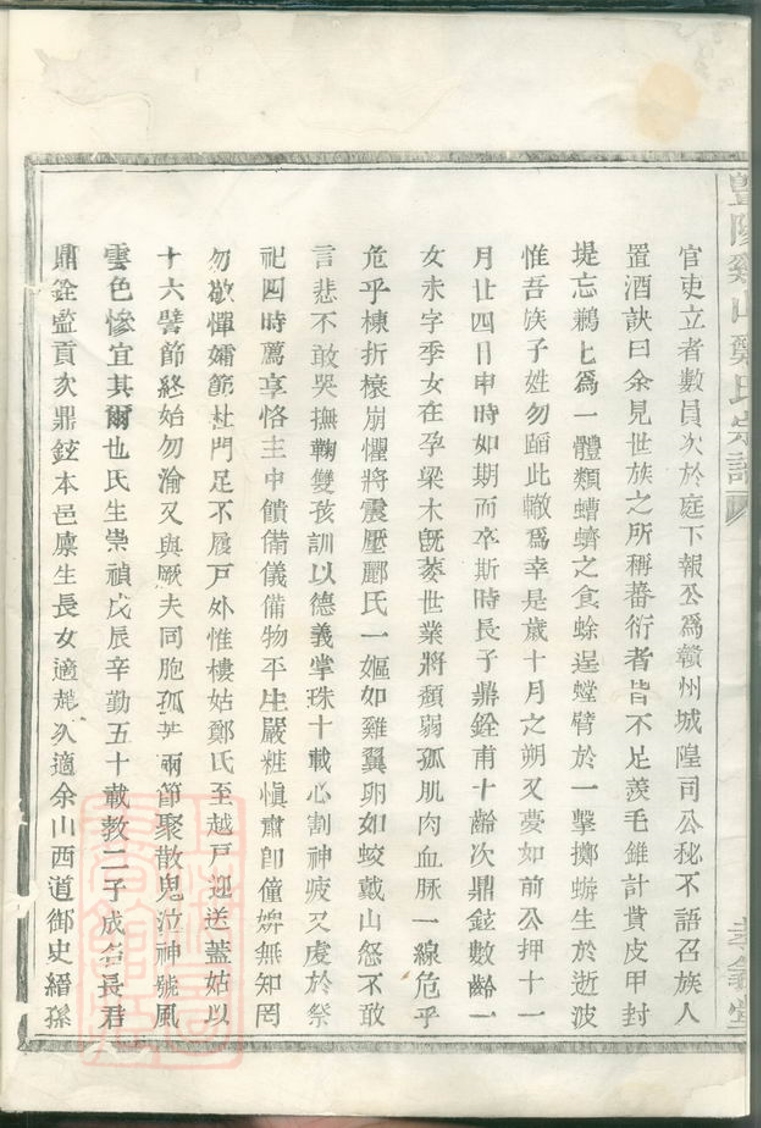 豊陽奚山鄭氏宗譜
孝翕堂
官吏立者數員次於庭下報公爲贛州城隍司公秘不語召族人
置酒訣曰余見世族之所稱蕃衍者皆不足羨毛錐計貲皮甲封
堤忘鵜匕爲一體類螬蠐之食蜍逞螳臂於一擊擲蝣生於逝波
惟吾族子姓勿蹈此轍爲幸是歲十月之朔又夢如前公押十一
月廿四日申時如期而卒斯時長子鼎銓甫十齡次鼎鉉數齡一
女未字季女在孕梁木旣萎世業將頹弱孤肌肉血脉一線危乎
危乎棟折榱崩懼將震壓酈氏一嫗如雞翼卵如蛟戴山怨不敢
言悲不敢哭撫鞠雙孩訓以德義掌珠十載心割神疲又虔於祭
祀四時薦享恪主中饋備儀備物平生嚴粧愼肅卽僮婢無知罔
勿欽憚孀節杜門足不履戸外惟樓姑鄭氏至越戸迎送蓋姑以
十六謦節終始勿渝又與厥夫同胞孤芋兩節聚散鬼泣神號風
雲色慘宜其爾也氏生崇禎戊辰辛勤五十載教二子成名長君
鼎銓監貢次鼎鉉本邑廪生長女適 次適余山西道御史縉孫